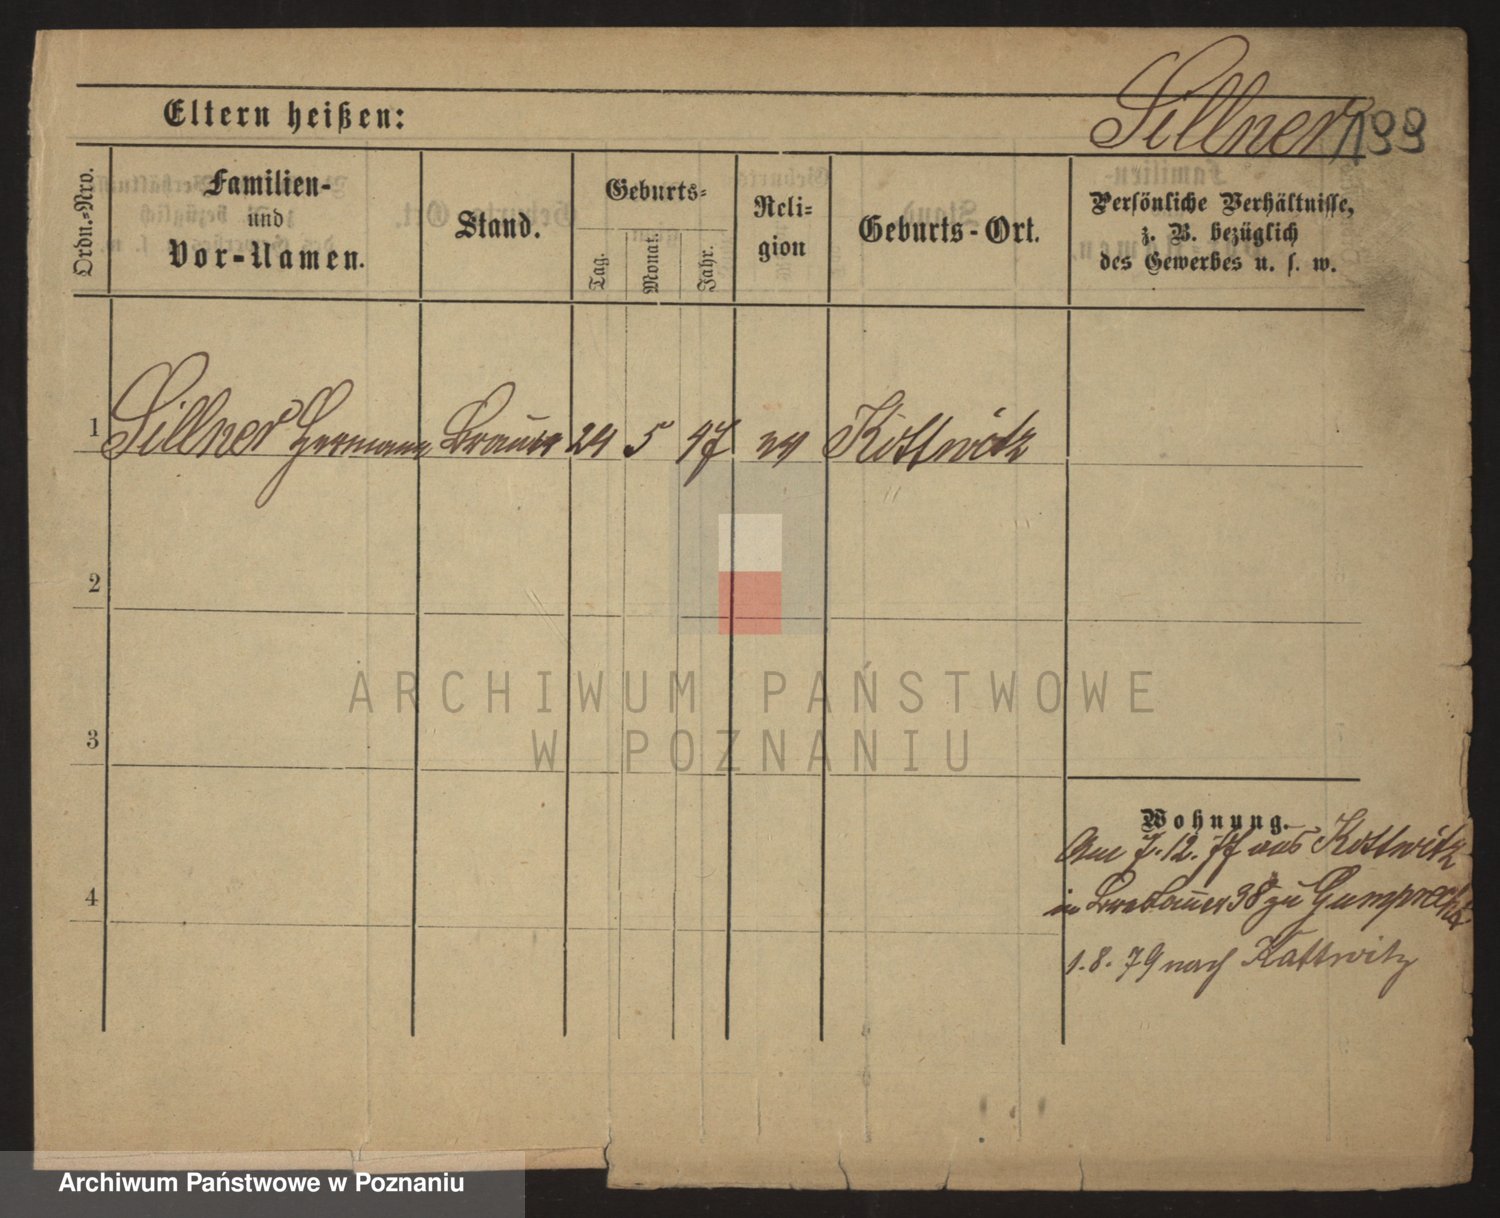 Sillner
199
Eltern heißen:
Ordn.=Nro.
Familien-
und
Vor-Namen.
Stand.
Geburts=
Tag.
Monat.
Jahr.
Reli=
gion
Geburts-Ort.
Persönliche Verhältnisse,
z. B. bezüglich
des Gewerbes u. s. w.
1 Sillner Hermann Brauer 24 5 47 Kottwitz
2
ARCHIWUM PAŃSTWOWE
W POZNANIU
3
Wohnung.
Am 7.12.77 aus Kottwitz
in Breslauer 38 zu Gumprecht
4
1.8.79 nach Kattwitz
Archiwum Państwowe w Poznaniu